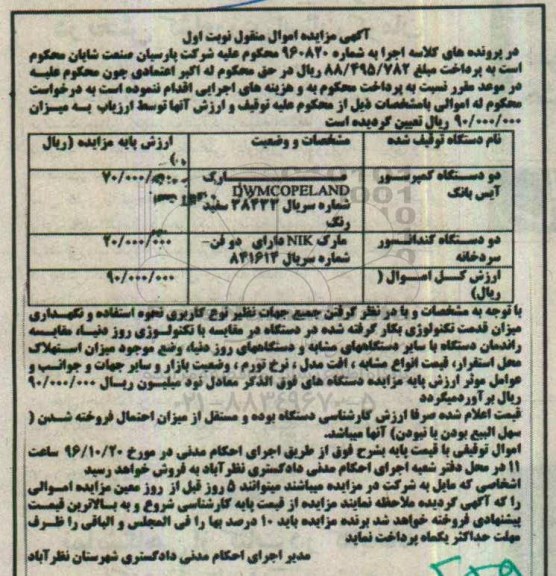 آگهی مزایده اموال منقول نوبت اول
در پرونده های کلاسه اجرا به شماره ۹۶۰۸۲۰ محکوم علیه شرکت پارسیان صنعت شایان محکوم
است به پرداخت مبلغ ۸۸/۴۹۵/۷۸۲ ریال در حق محکوم له اکبر اعتمادی چون محکوم علیه
در موعد مقرر نسبت به پرداخت محکوم به و هزینه های اجرایی اقدام ننموده است به درخواست
محکوم له اموالی بامشخصات ذیل از محکوم علیه توقیف و ارزش آنها توسط ارزیاب به میزان
۹۰/۰۰۰/۰۰۰ ریال تعیین گردیده است
نام دستگاه توقیف شده
مشخصات و وضعیت
ارزش پایه مزایده (ریال
)
دو دستگاه کمپرسور
آیس بانک
مارک
DWMCOPELAND
شماره سریال ۳۸۴۳۳ سفید
رنگ
۷۰/۰۰۰/۰۰۰
دو دستگاه کندانسور
سردخانه
مارک NIK دارای دو فن-
شماره سریال ۸۴۱۶۱۴
۲۰/۰۰۰/۰۰۰
ارزش کل اموال (
ریال)
۹۰/۰۰۰/۰۰۰
با توجه به مشخصات و با در نظر گرفتن جمیع جهات نظیر نوع کاربری نحوه استفاده و نگهداری
میزان قدمت تکنولوژی بکار گرفته شده در دستگاه در مقایسه با تکنولوژی روز دنیا، مقایسه
راندمان دستگاه با سایر دستگاههای مشابه و دستگاههای روز دنیا، وضع موجود میزان استهلاک
محل استقرار، قیمت انواع مشابه ، افت مدل ، نرخ تورم ، وضعیت بازار و سایر جهات و جوانب و
عوامل موثر ارزش پایه مزایده دستگاه های فوق الذکر معادل نود میلیون ریال ۹۰/۰۰۰/۰۰۰
ریال برآوردمیگردد
قیمت اعلام شده صرفا ارزش کارشناسی دستگاه بوده و مستقل از میزان احتمال فروخته شدن (
سهل البیع بودن یا نبودن) آنها میباشد.
اموال توقیفی با قیمت پایه بشرح فوق از طریق اجرای احکام مدنی در مورخ ۹۶/۱۰/۲۰ ساعت
۱۱ در محل دفتر شعبه اجرای احکام مدنی دادگستری نظرآباد به فروش خواهد رسید
اشخاصی که مایل به شرکت در مزایده میباشند میتوانند ۵ روز قبل از روز معین مزایده اموالی
را که آگهی گردیده ملاحظه نمایند مزایده از قیمت پایه کارشناسی شروع و به بالاترین قیمت
پیشنهادی فروخته خواهد شد برنده مزایده باید ۱۰ درصد بها را فی المجلس و الباقی را ظرف
مهلت حداکثر یکماه پرداخت نماید
مدیر اجرای احکام مدنی دادگستری شهرستان نظرآباد